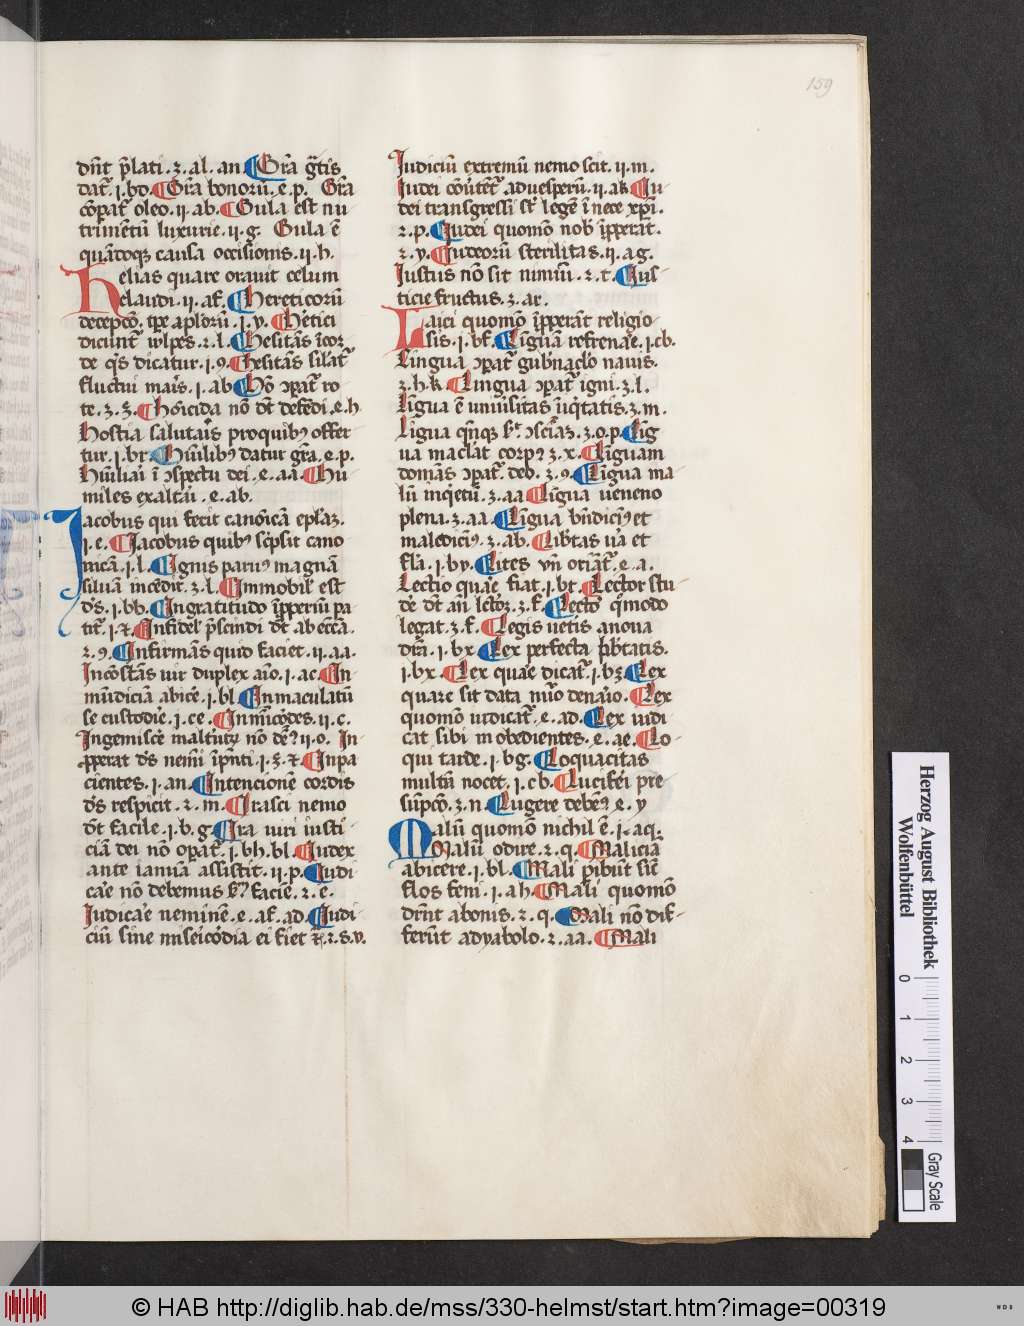 159
dn̄t p̄lati . 3 . al . an . ¶ Gr̄a gr̄tis
dat̄ . i . bd . ¶ Gr̄a bonorū . e . p . Gr̄a
cōpat̄ oleo . ii . ab . ¶ Gula est nu
trimētū luxurie . ii . g . Gula ē
quādoqꝫ causa occisionis . ii . h .
Helias quare orauit celum
claudi . ii . af . ¶ Hereticorū
decepcō . tpe aplorū . i . y . ¶ Hetici
dicunt̄ vulpes . 2 . l . ¶ Hesitās ī cor
de qͥs dicatur . i . 9 . ¶ Hesitās sil'at̄
fluctui maīs . i . ab ¶ Hō ꝯpat̄ ro
te . 3 . ¶ Homicida nō dt̄ defēdi . e . h
Hostia salutaīs pro quibꝰ offer
tur . i . br . ¶ Hūilibꝰ datur gr̄a . e . p .
Hūiliai ī ꝯspectu dei . e . aa . ¶ Hu
miles exaltāt̄ . e . ab .
Iacobus qui fecit canōicā epl'aꝫ .
i . e . ¶ Iacobus quibꝰ sc̄psit cano
nicā . i . l . ¶ Ignis paruꝰ magnā
siluā incēdit . 3 . l . ¶ Immobil' est
d's . i . bb . ¶ Ingratitudo īpperiū pa
tit̄ . i . ¶ Infidel' p̄scindi dt̄ ab ecc̄a .
2 . 9 . ¶ Infirmās quid faciet . ii . aa .
Incōstās uir duplex aīo . i . ac . ¶ In
mūdiciā abicē . i . bl ¶ Inmaculatū
se custodiē . i . ce . ¶ Inmīcōdes . ii . c .
Ingemiscē nō . ii . o . In
pperat d's nemī . i . ¶ Inpa
cientes . i . an . ¶ Intencionē cordis
d's respicit . 2 . m . ¶ Irasci nemo
dt̄ facile . i . b . g ¶ Ira uiri iusti
ciā dei nō opat̄ . i . bh . bl . ¶ Iudex
ante ianuā assistit . ii . p . ¶ Iudi
caē nō debemus facie . 2 . e .
Iudicaē neminē . e . af . ad . ¶ Iudi
ciū sine misericordia ei fiet . 2 . s . v .
Iudiciū extremū nemo scit . ii . m .
Iudei aduesperū . ii . ak ¶ Iu
dei transgressi st̄ legē ī nece xp̄i .
2 . p . ¶ Iudei quomō nob īpperat̄ .
2 . y . ¶ Iudeorū sterilitas . ii . ag .
Iustus nō sit nimiū . 2 . t . ¶ Ius
ticie fructus . 3 . ar .
Laici quomō īpperāt religio
sis . i . bf . ¶ Linguā refrenaē . i . cb .
Lingua ꝯpat̄ gub'naclo nauis .
3 . h . k . ¶ Lingua ꝯpat̄ igni . 3 . l .
Lingua ē uniu'sitas īiq̄tatis . 3 . m .
Ligua qn̄qꝫ st̄ ꝯsciaꝫ . 3 . o . p . ¶ Līg
ua maclat corpꝰ . 3 . x . ¶ Līguam
domās ꝯpat̄ deb . 3 . 9 . ¶ Līgua ma
lū inqetū . 3 . aa ¶ Lingua ueneno
plena . 3 . aa . ¶ Līgua bn̄diciꝰ et
maledīciꝰ . 3 . ab . ¶ Lib'tas ua et
fl'a . i . by . ¶ Lites vn̄ oriāt̄ . e . a .
Lectio quaē fiat . i . bt . ¶ Lector stu
dē dt̄ an̄ lectōꝫ . 3 . f . ¶ Lectō qͦmodo
legat . 3 . f . ¶ Legis uetīs a noua
drīa . i . bx . ¶ Lex perfecta lib'tatis .
i . bx . ¶ Lex quaē dicat̄ . i . bz ¶ Lex
quare sit data nūo denaīo . ¶ Lex
quomō iudicat̄ . e . ad . ¶ Lex iudi
cat sibi in obedientes . e . ae . ¶ Lo
qui tarde . i . bg . ¶ Loquacitas
multū nocet . i . cb . ¶ Luciferi pre
sūpcō . 3 . n . ¶ Lugere debeꝰ . e . y
Malū quomō nichil ē . i . aq .
Malū odire . 2 . q . ¶ Maliciā
abicere . i . bl . ¶ Mali pibūt sic̄
flos feni . i . ah . ¶ Mali quomō
drn̄t a bonis . 2 . q . ¶ Mali nō dif
ferūt a dyabolo . 2 . aa . ¶ Mali
Herzog August Bibliothek
Wolfenbüttel
0 1 2 3 4
Gray Scale
© HAB http://diglib.hab.de/mss/330-helmst/start.htm?image=00319